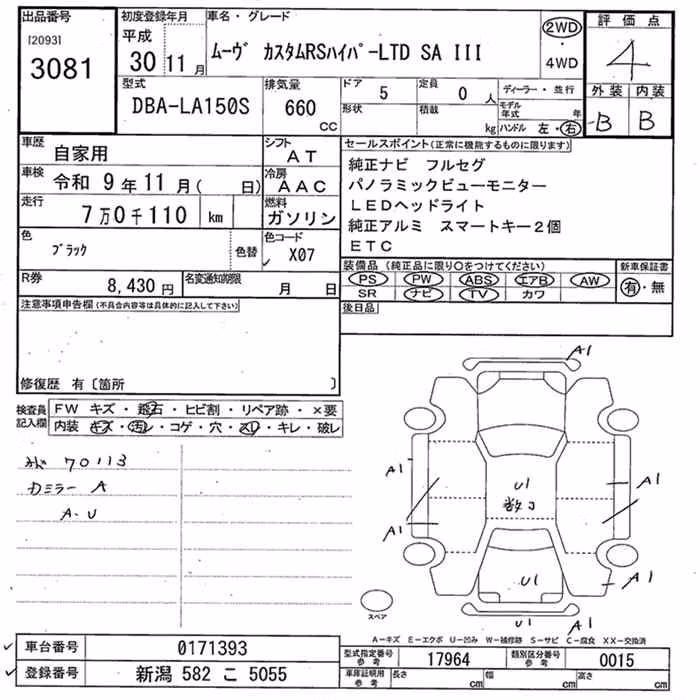 出品番号
[2093]
3081
初度登録年月
平成
30年11月
車名・グレード
ムーヴ カスタムRSハイパ-LTD SA III
2WD
・
4WD
評価点
4
外装 内装
B B
型式
DBA-LA150S
排気量
660
CC
ドア 5
形状
定員 0 人
積載 kg
ディーラー・並行
モデル年式 年
ハンドル 左・右
車歴
自家用
シフト
AT
車検
令和 9年11月( 日)
冷房
AAC
走行
7万0千110 km
燃料
ガソリン
色
ブラック
色替
色コード
X07
R券
8,430円
名変通知期限
月 日
セールスポイント(正常に機能するものに限ります)
純正ナビ フルセグ
パノラミックビューモニター
LEDヘッドライト
純正アルミ スマートキー2個
ETC
装備品(純正品に限り○をつけてください)
PS PW ABS エアB AW
SR ナビ TV カワ
新車保証書
有・無
後日品
注意事項申告欄(不具合内容等は具体的に記入して下さい)
修復歴 有〔箇所 〕
検査員
記入欄
FW キズ・飛石・ヒビ割・リペア跡・×要
内装 キズ・汚レ・コゲ・穴・スレ・キレ・破レ
70113
Dミラー A
A・U
A1
A1
A1
A1
A1
A1
U1
数コ
U1
U1
A1
スペア
A-キズ E-エクボ U-凹み W-補修跡 S-サビ C-腐食 XX-交換済
車台番号
0171393
登録番号
新潟 582 こ 5055
型式指定番号
参考
17964
類別区分番号
参考
0015
車庫証明用
参考
長さ cm
幅 cm
高さ cm